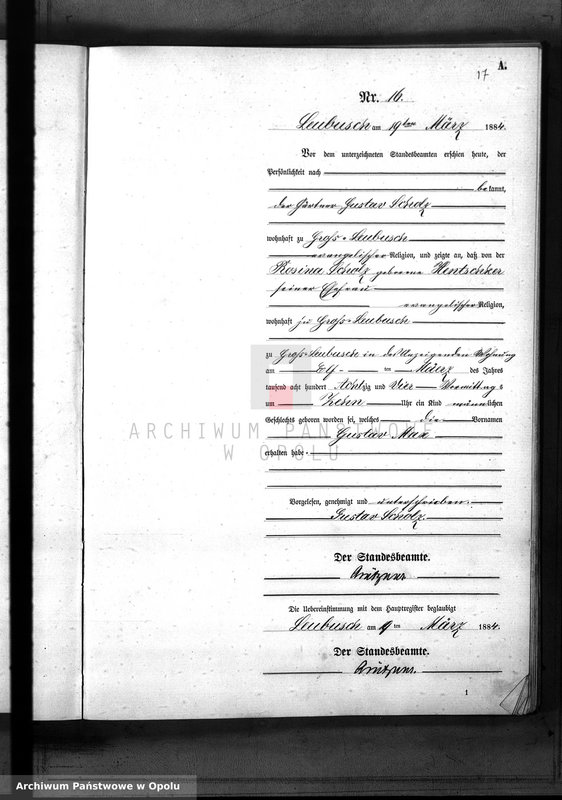 A.
17
Nr. 16.
Leubusch am 19ten März 1884.
Vor dem unterzeichneten Standesbeamten erschien heute, der
Persönlichkeit nach
bekannt,
der Gärtner Gustav Scholz
wohnhaft zu Groß-Leubusch
evangelischer Religion, und zeigte an, daß von der
Rosina Scholz geborene Hentschker
seiner Ehefrau
evangelischer Religion,
wohnhaft zu Groß-Leubusch
zu Groß-Leubusch in des Anzeigenden Wohnung
am Elf ten März des Jahres
tausend acht hundert Achtzig und Vier Vormittags
um Zehn Uhr ein Kind männlichen
Geschlechts geboren worden sei, welches die Vornamen
Gustav Max
erhalten habe.
ARCHIWUM PAŃSTWOWE
W OPOLU
Vorgelesen, genehmigt und unterschrieben.
Gustav Scholz.
Der Standesbeamte.
Die Uebereinstimmung mit dem Hauptregister beglaubigt
Leubusch am 19ten März 1884.
Der Standesbeamte.
1
Archiwum Państwowe w Opolu